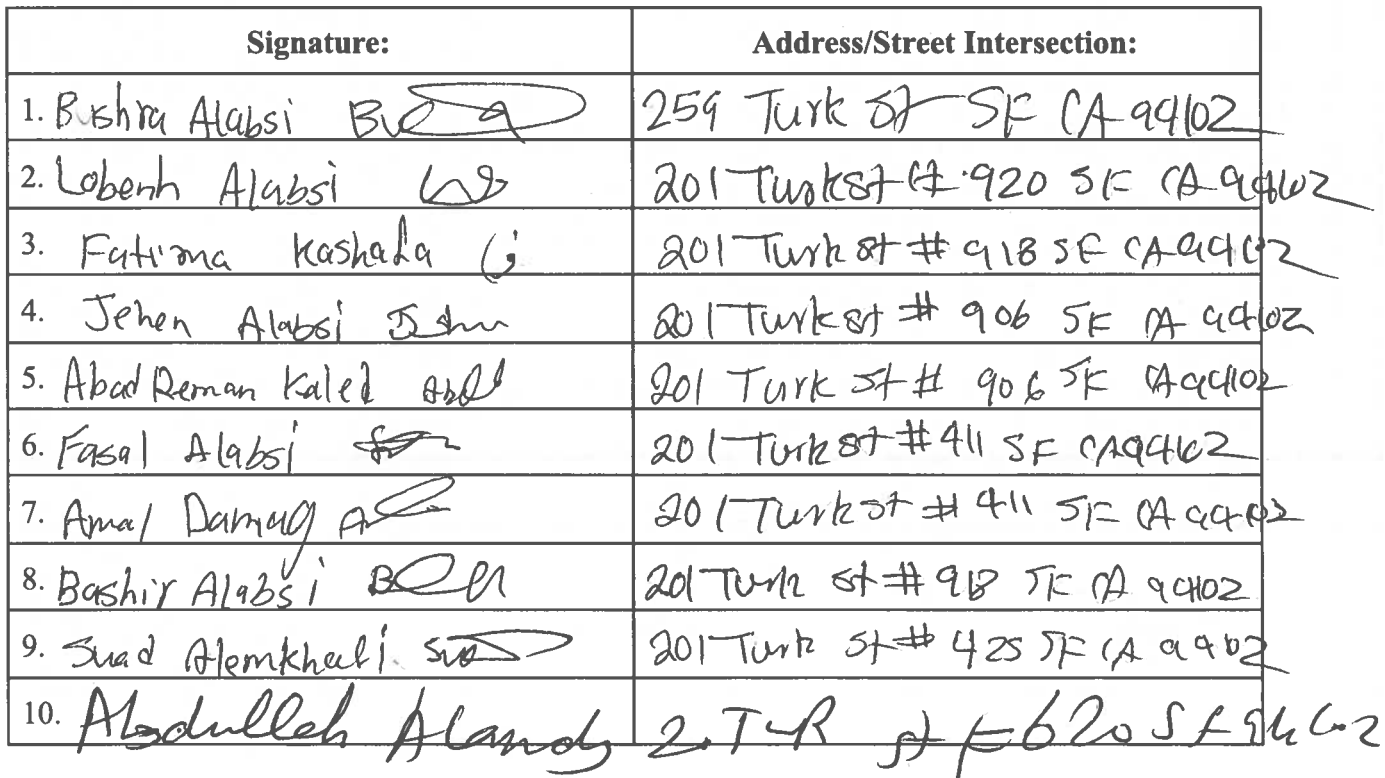 Signature: Address/Street Intersection:
1. Bushra Alabsi 259 Turk St SF CA 94102
2. Lobenh Alabsi 201 Turk St #920 SF CA 94102
3. Fatima Kashada 201 Turk st # 918 SF CA 94102
4. Jehen Alabsi 201 Turk st # 906 SF CA 94102
5. Abad Reman Kaled 201 Turk St # 906 SF CA 94102
6. Fasal Alabsi 201 Turk st # 411 SF CA 94102
7. Amal Damag 201 Turk st # 411 SF CA 94102
8. Bashir Alabsi 201 Turk st # 918 SF CA 94102
9. Suad Alemkhali 201 Turk St # 425 SF CA 94102
10. Abdulleh 620 SF